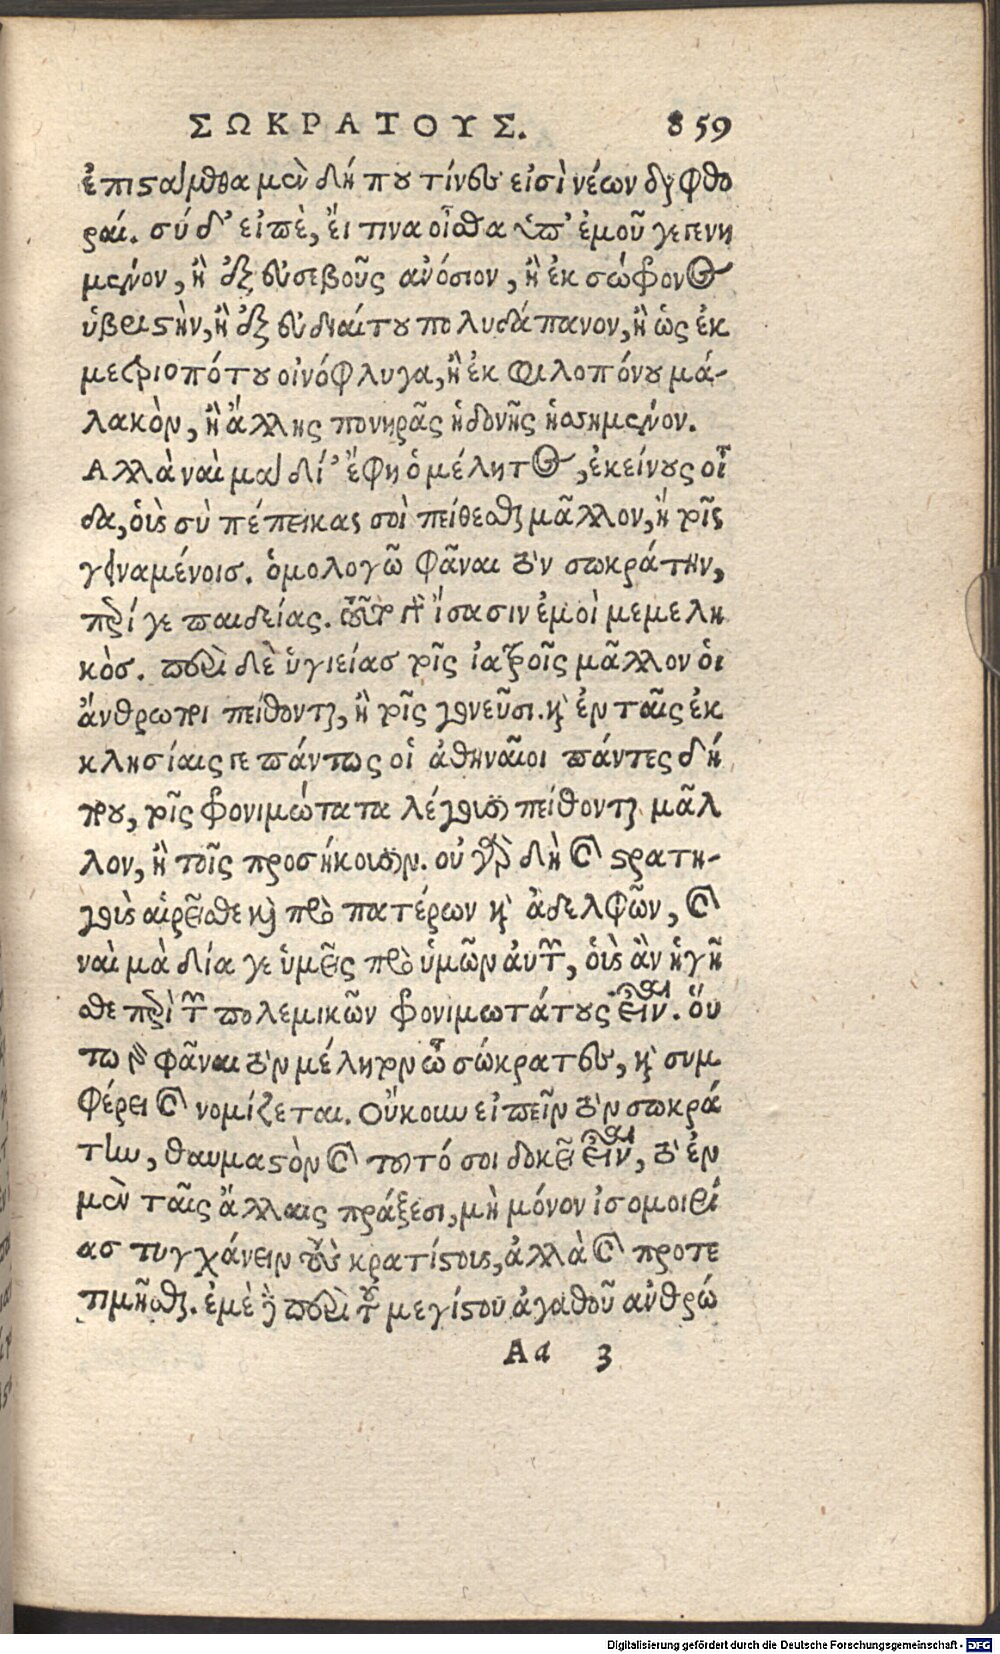 ΣΩΚΡΑΤΟΥΣ. 859
ἐπιστάμεθα μὲν δή που τίνες εἰσὶ νέων διαφθο
ραί. σύ δ' εἰπὲ, ἔι τινα οἶσθα ὑπ' ἐμοῦ γεγενη
μένον, ἢ ἐξ εὐσεβοῦς ἀνόσιον, ἢ ἐκ σώφρονος
ὑβριστὴν, ἢ ἐξ εὐδιαίτου πολυδάπανον, ἢ ὡς ἐκ
μετριοπότου οἰνόφλυγα, ἢ ἐκ φιλοπόνου μά-
λακὸν, ἢ ἄλλης πονηρᾶς ἡδονῆς ἡσσημένον.
Αλλὰ ναὶ μὰ δί' ἔφη ὁ μέλητος, ἐκείνους οἶ
δα, οὓς σὺ πέπεικας σοὶ πείθεσθαι μᾶλλον, ἢ τοῖς
γειναμένοις. ὁμολογῶ φᾶναι τὸν σωκράτην,
περί γε παιδείας. τοῦτο γὰρ ἴσασιν ἐμοὶ μεμελη
κὸς. περὶ δὲ ὑγιείας τοῖς ἰατροῖς μᾶλλον ὁι
ἄνθρωποι πείθονται, ἢ τοῖς γονεῦσι. καὶ ἐν ταῖς ἐκ
κλησίαις γε πάντως οἱ ἀθηναῖοι πάντες δή
που, τοῖς φρονιμώτατα λέγουσι πείθονται μᾶλ
λον, ἢ τοῖς προσήκουσιν. οὐ γὰρ δὴ καὶ στρατη-
γοὺς αἱρεῖσθε καὶ πρὸ πατέρων καὶ ἀδελφῶν, καὶ
ναὶ μὰ δία γε ὑμεῖς πρὸ ὑμῶν αὐτῶν, οὓς ἂν ἡγῆ
σθε περὶ τῶν πολεμικῶν φρονιμωτάτους εἶναι. ὅυ
τω γὰρ φᾶναι τὸν μέλητον ὦ σώκρατες, καὶ συμ
φέρει καὶ νομίζεται. Οὔκουν εἰπεῖν τὸν σωκρά
την, θαυμαστὸν καὶ τοῦτό σοι δοκεῖ εἶναι, τὸ ἐν
μὲν ταῖς ἄλλαις πράξεσι, μὴ μόνον ἰσομοιρί
ας τυγχάνειν τοὺς κρατίστους, ἀλλὰ καὶ προτε
τιμῆσθαι. ἐμὲ δὲ περὶ τοῦ μεγίστου ἀγαθοῦ ἀνθρώ
Aa 3
Digitalisierung gefördert durch die Deutsche Forschungsgemeinschaft - DFG